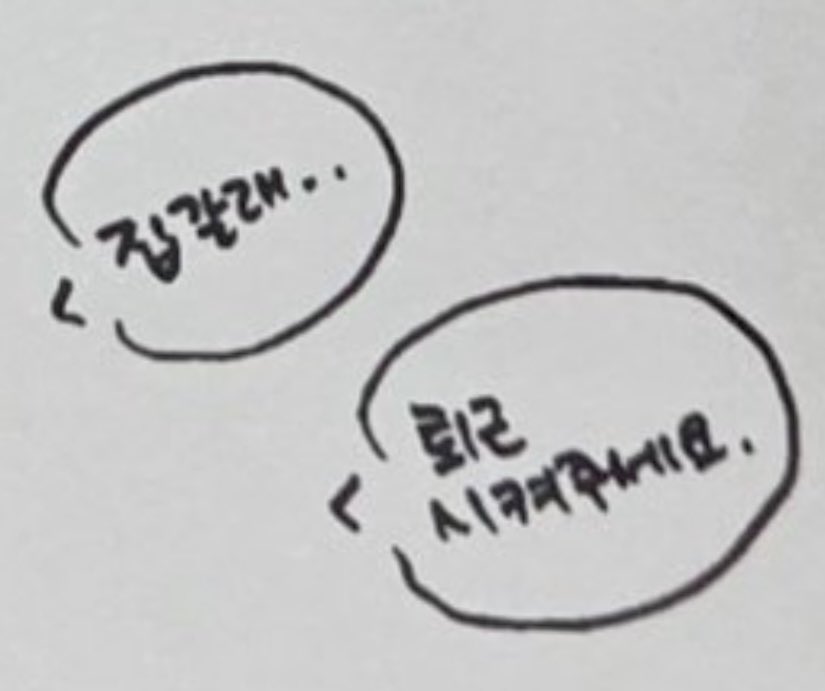 집갈래..
퇴근
시켜주세요.